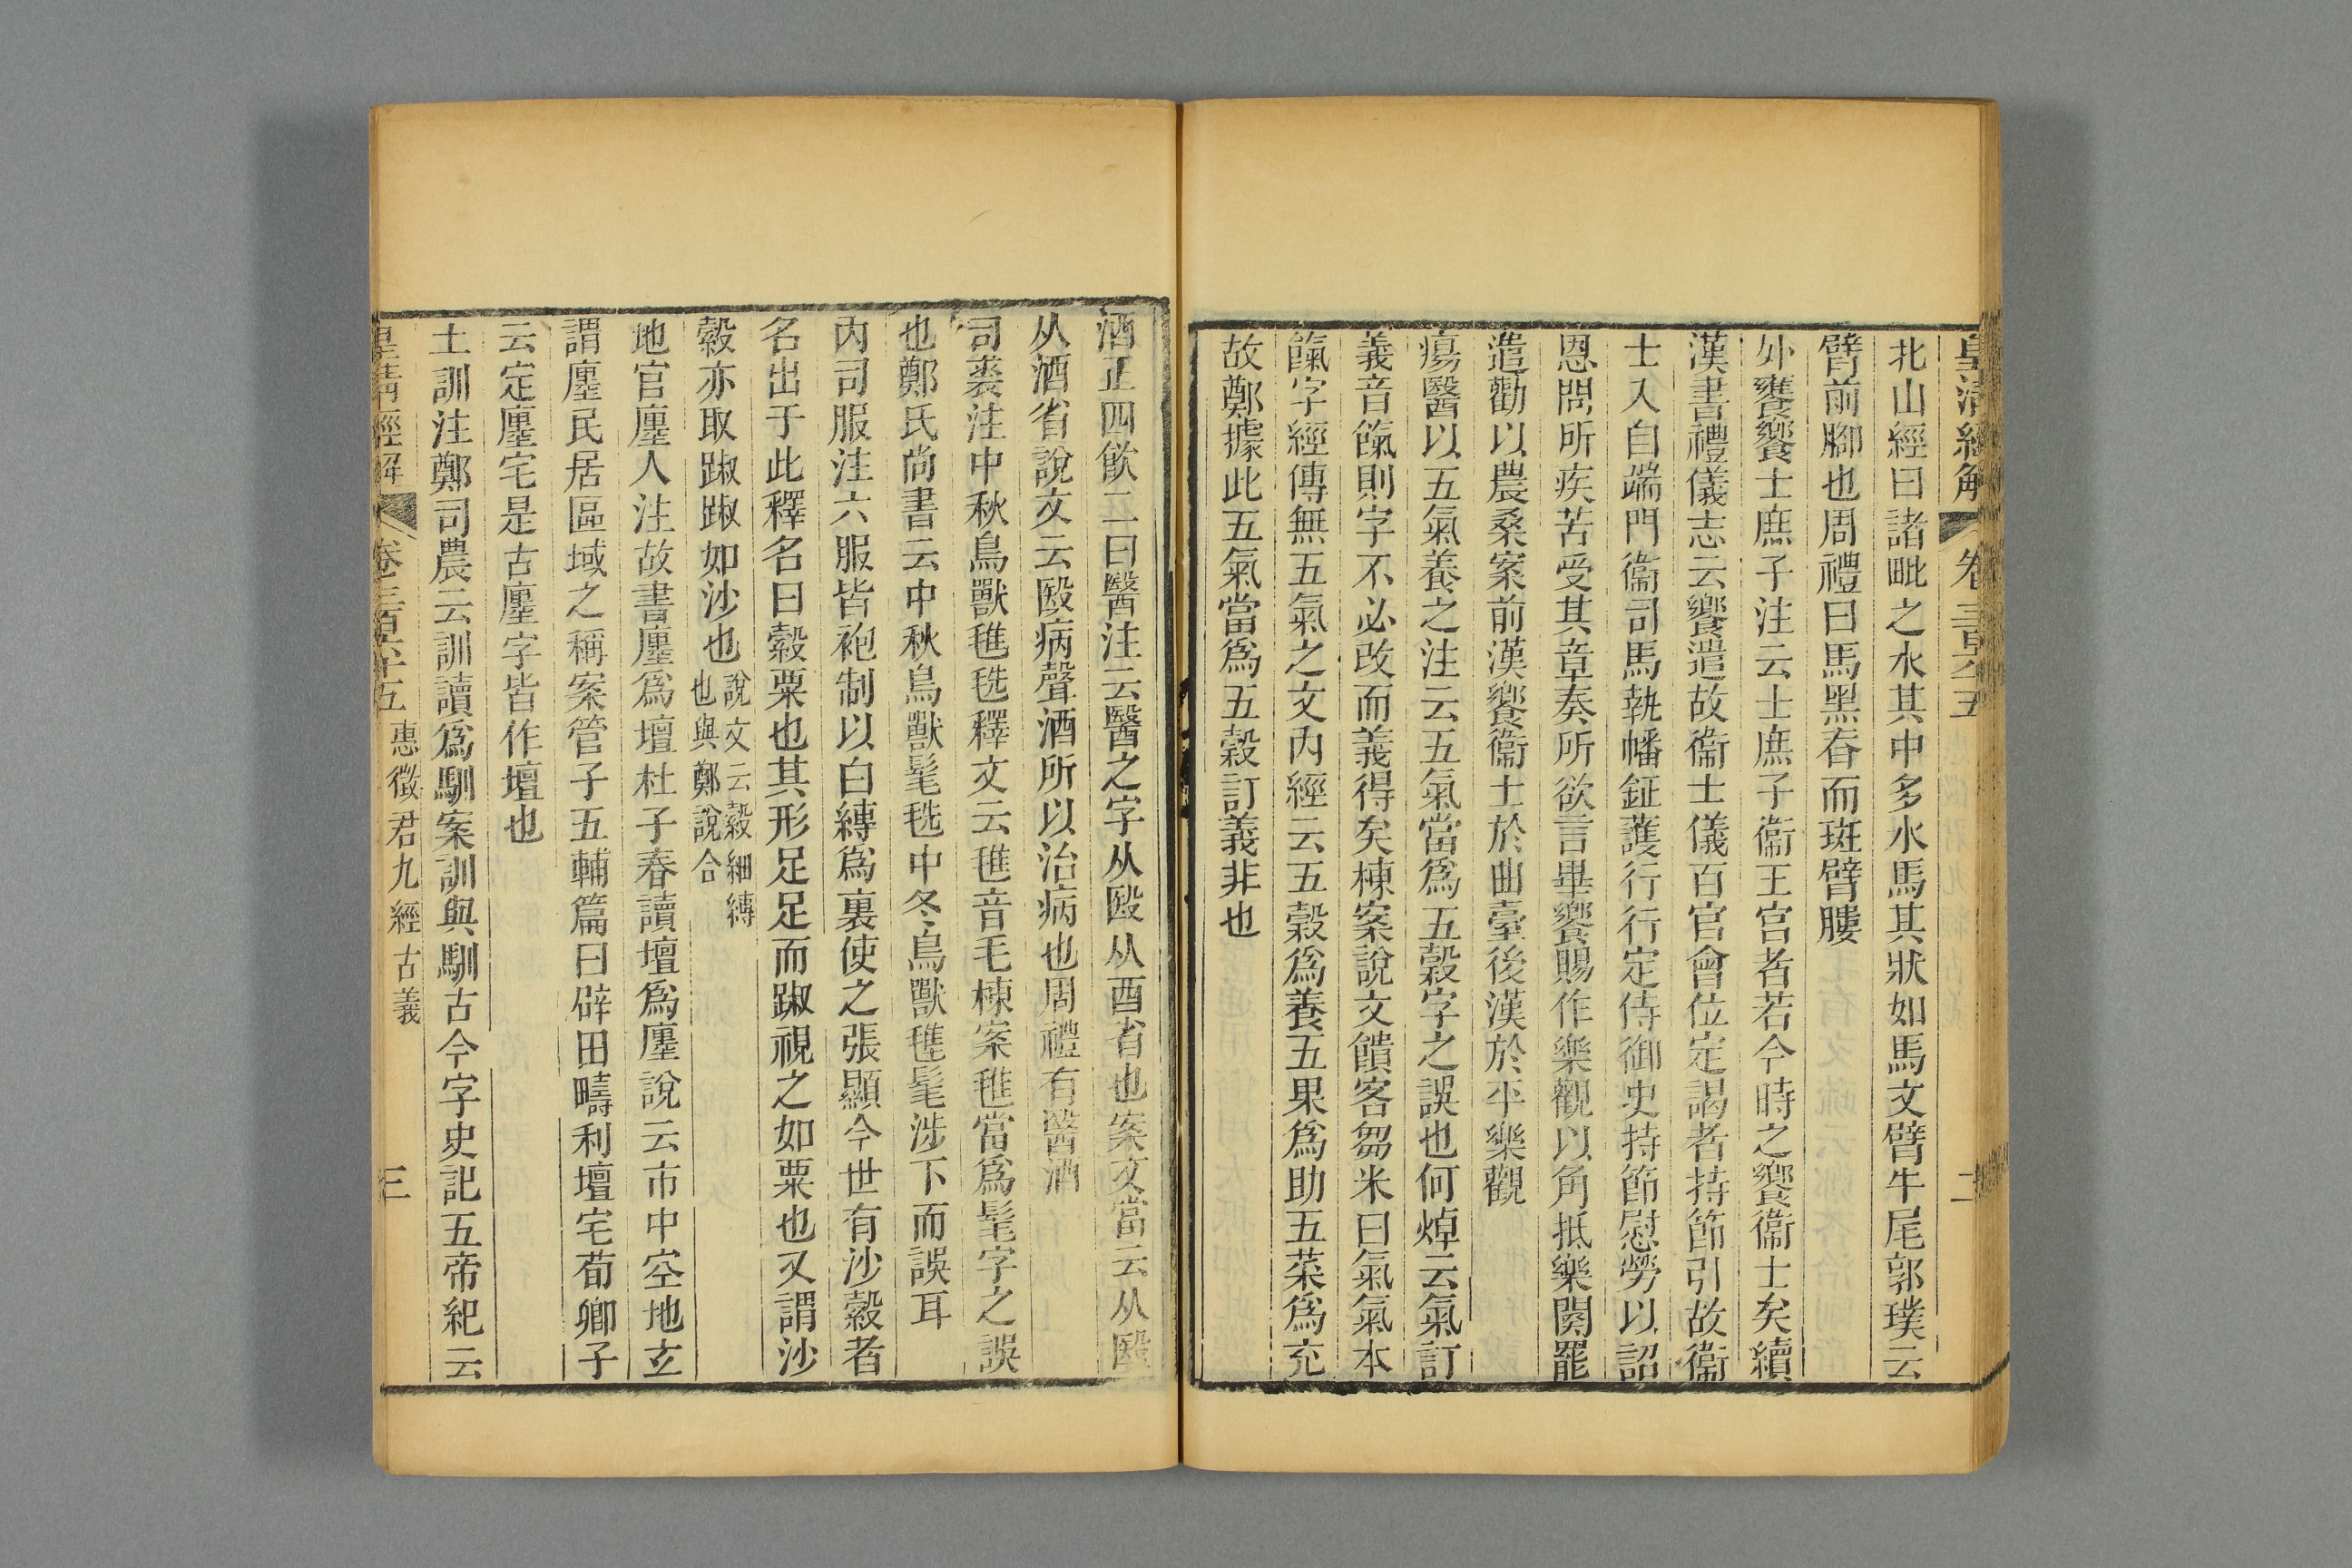 皇清經解 卷三百六十五 二
北山經曰諸毗之水其中多水馬其狀如馬文臂牛尾郭璞云
臂前腳也周禮曰馬黑脊而斑臂膢
外饔饗士庶子注云士庶子衞王宫者若今時之饗衞士矣續
漢書禮儀志云饗遣故衞士儀百官會位定謁者持節引故衞
士入自端門衞司馬執幡鉦護行行定侍御史持節慰勞以詔
恩問所疾苦受其章奏所欲言畢饗賜作樂觀以角抵樂闋罷
遣勸以農桑案前漢饗衞士於曲臺後漢於平樂觀
瘍醫以五氣養之注云五氣當爲五穀字之誤也何焯云氣訂
義音餼則字不必改而義得矣棟案說文饋客芻米曰氣氣本
餼字經傳無五氣之文内經云五穀爲養五果爲助五菜爲充
故鄭據此五氣當爲五穀訂義非也
酒正四飲二曰醫注云醫之字从殹从酉省也案文當云从殹
从酒省說文云殹病聲酒所以治病也周禮有醫酒
司裘注中秋鳥獸毨毨釋文云毨音毛棟案毨當爲髦字之誤
也鄭氏尚書云中秋鳥獸髦毨中冬鳥獸氄髦涉下而誤耳
内司服注六服皆袍制以白縳爲裏使之張顯今世有沙縠者
名出于此釋名曰縠粟也其形足足而踧視之如粟也又謂沙
縠亦取踧踧如沙也 說文云縠細縳
也與鄭說合
地官廛人注故書廛爲壇杜子春讀壇爲廛說云市中空地玄
謂廛民居區域之稱案管子五輔篇曰辟田疇利壇宅荀卿子
云定廛宅是古廛字皆作壇也
土訓注鄭司農云訓讀爲馴案訓與馴古今字史記五帝紀云
皇清經解 卷三百六十五 惠徵君九經古義 三